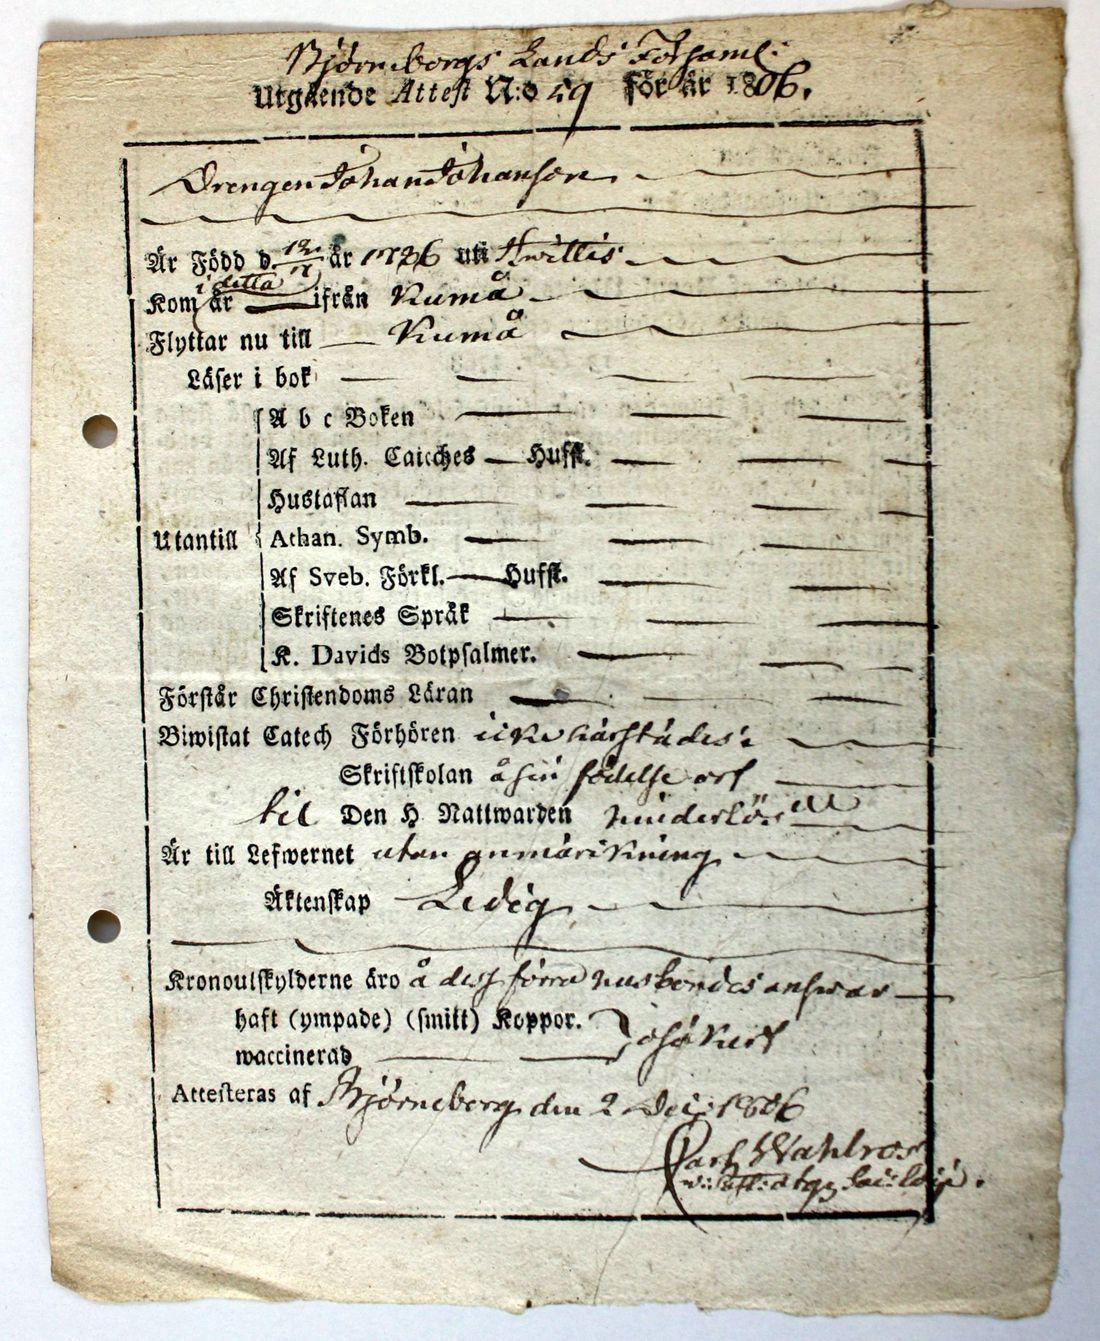 Björneborgs Lands Församl:
Utgående Attest N:o 59 för år 1806.
Drengen Johan Johansson
Är Född d. 12/7 år 1786 uti Hvittis
i detta
Kom år ifrån Kumå
Flyttar nu till Kumå
Läser i bok
A b c Boken
Af Luth. Cateches Hufst.
Hustaflan
Utantill Athan. Symb.
Af Sveb. Förkl. Hufst.
Skriftenes Språk
K. Davids Botpsalmer.
Förstår Christendoms Läran
Biwistat Catech Förhören icke härstädes
Skriftskolan å sin födelse ort
til Den H Nattwarden hinderlös
Är till Lefwernet utan anmärkning
Äktenskap Ledig
Kronoutskylderne äro å dess förra husbondes answar
haft (ympade) (smitt) Koppor. osäkert
waccinerad
Attesteras af Björneborg den 2 Dec: 1806
Carl Wahlros